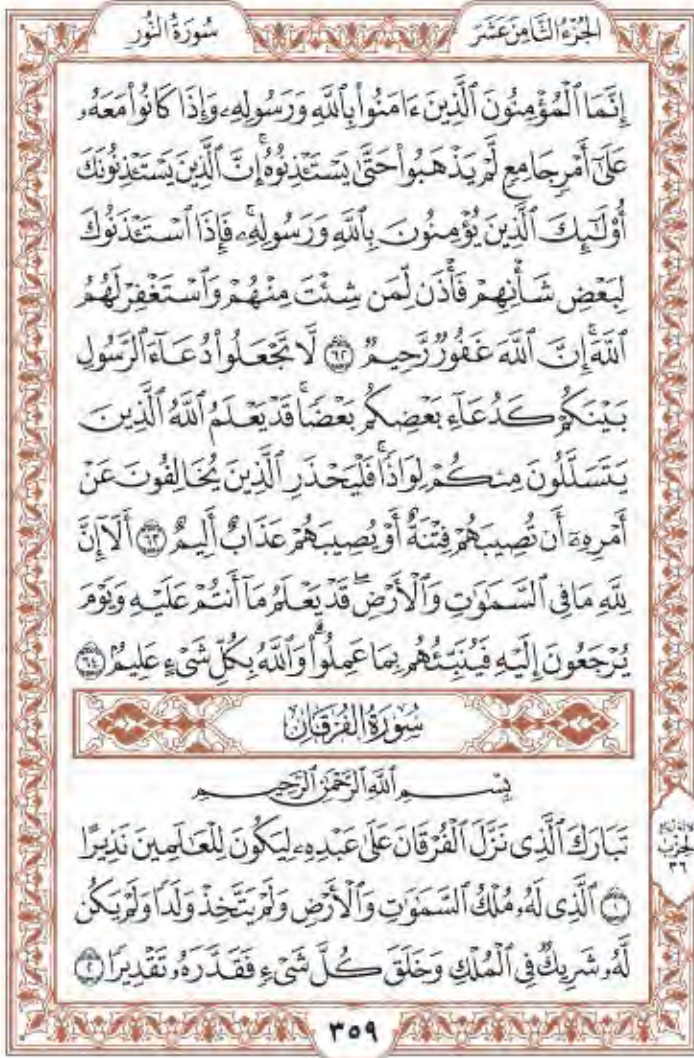 الجُزْءُ الثَّامِنَ عَشَرَ
سُورَةُ النُّورِ
إِنَّمَا ٱلْمُؤْمِنُونَ ٱلَّذِينَ ءَامَنُوا۟ بِٱللَّهِ وَرَسُولِهِۦ وَإِذَا كَانُوا۟ مَعَهُۥ
عَلَىٰٓ أَمْرٍ جَامِعٍ لَّمْ يَذْهَبُوا۟ حَتَّىٰ يَسْتَـْٔذِنُوهُ ۚ إِنَّ ٱلَّذِينَ يَسْتَـْٔذِنُونَكَ
أُو۟لَـٰٓئِكَ ٱلَّذِينَ يُؤْمِنُونَ بِٱللَّهِ وَرَسُولِهِۦ ۚ فَإِذَا ٱسْتَـْٔذَنُوكَ
لِبَعْضِ شَأْنِهِمْ فَأْذَن لِّمَن شِئْتَ مِنْهُمْ وَٱسْتَغْفِرْ لَهُمُ
ٱللَّهَ ۚ إِنَّ ٱللَّهَ غَفُورٌ رَّحِيمٌ ٦٢ لَّا تَجْعَلُوا۟ دُعَآءَ ٱلرَّسُولِ
بَيْنَكُمْ كَدُعَآءِ بَعْضِكُم بَعْضًا ۚ قَدْ يَعْلَمُ ٱللَّهُ ٱلَّذِينَ
يَتَسَلَّلُونَ مِنكُمْ لِوَاذًا ۚ فَلْيَحْذَرِ ٱلَّذِينَ يُخَالِفُونَ عَنْ
أَمْرِهِۦٓ أَن تُصِيبَهُمْ فِتْنَةٌ أَوْ يُصِيبَهُمْ عَذَابٌ أَلِيمٌ ٦٣ أَلَآ إِنَّ
لِلَّهِ مَا فِى ٱلسَّمَـٰوَٰتِ وَٱلْأَرْضِ ۖ قَدْ يَعْلَمُ مَآ أَنتُمْ عَلَيْهِ وَيَوْمَ
يُرْجَعُونَ إِلَيْهِ فَيُنَبِّئُهُم بِمَا عَمِلُوا۟ ۗ وَٱللَّهُ بِكُلِّ شَىْءٍ عَلِيمٌۢ ٦٤
سُورَةُ الفُرْقَانِ
بِسْمِ ٱللَّهِ ٱلرَّحْمَـٰنِ ٱلرَّحِيمِ
تَبَارَكَ ٱلَّذِى نَزَّلَ ٱلْفُرْقَانَ عَلَىٰ عَبْدِهِۦ لِيَكُونَ لِلْعَـٰلَمِينَ نَذِيرًا
١ ٱلَّذِى لَهُۥ مُلْكُ ٱلسَّمَـٰوَٰتِ وَٱلْأَرْضِ وَلَمْ يَتَّخِذْ وَلَدًا وَلَمْ يَكُن
لَّهُۥ شَرِيكٌ فِى ٱلْمُلْكِ وَخَلَقَ كُلَّ شَىْءٍ فَقَدَّرَهُۥ تَقْدِيرًا ٢
الحِزْب
٣٦
٣٥٩